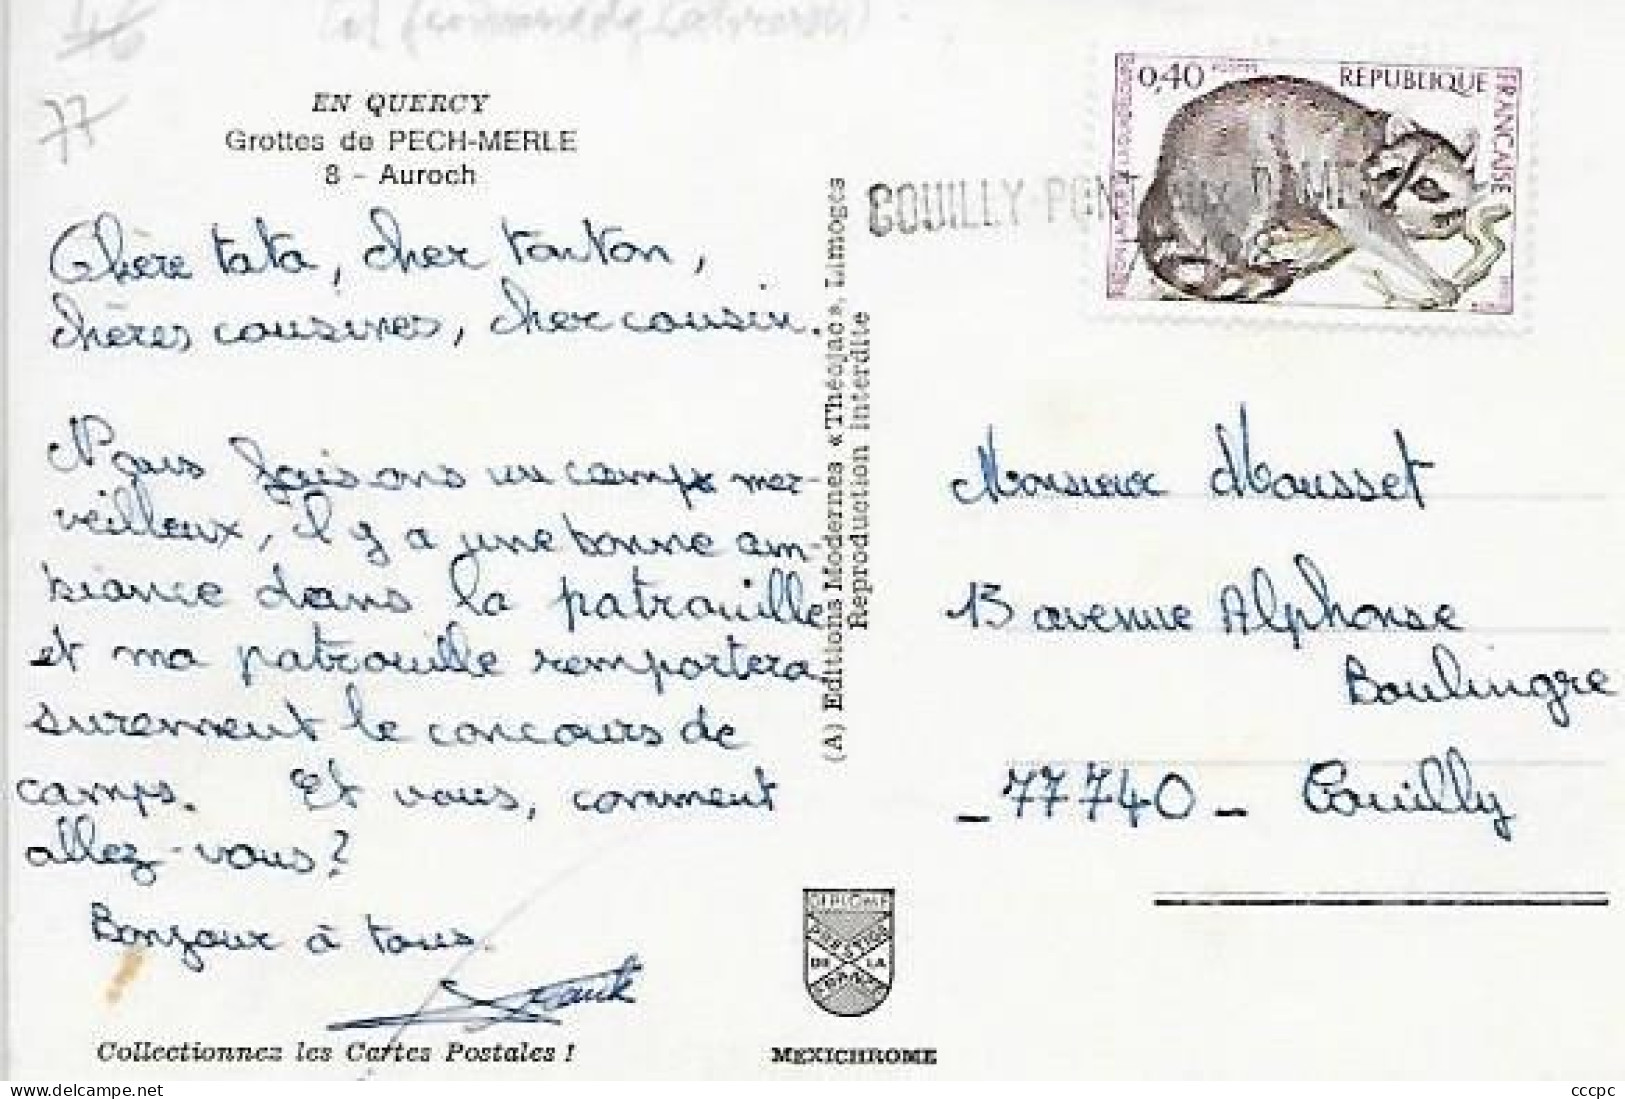 46
77
EN QUERCY
Grottes de PECH-MERLE
8 - Auroch
Chère tata, cher tonton,
chères cousines, cher cousin.
Nous faisons un camps mer-
veilleux, il y a une bonne am-
biance dans la patrouille
et ma patrouille remportera
surement le concours de
camps. Et vous, comment
allez-vous?
Bonjour à tous.
Franck
Collectionnez les Cartes Postales !
(A) Editions Modernes «Théojac», Limoges
Reproduction interdite
DIPLOME
PRESTIGE
DE LA
FRANCE
MEXICHROME
COUILLY-PONT AUX DAMES
0,40 POSTES REPUBLIQUE
FRANÇAISE
Monsieur Mousset
13 avenue Alphonse
Boulingre
_ 77740 _ Couilly
cccpc